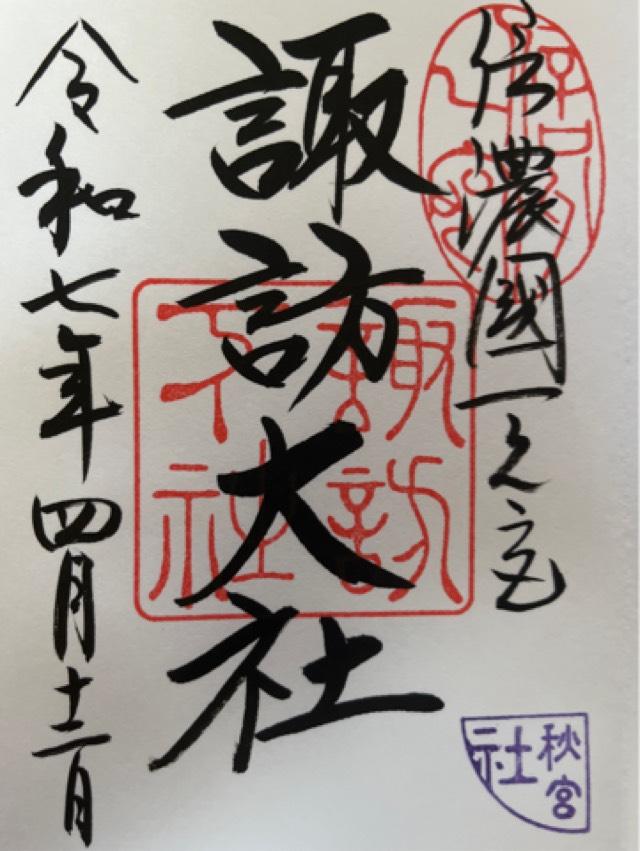 信濃國一之宮
諏訪大社
令和七年四月十二日
諏訪
下社
秋宮
社